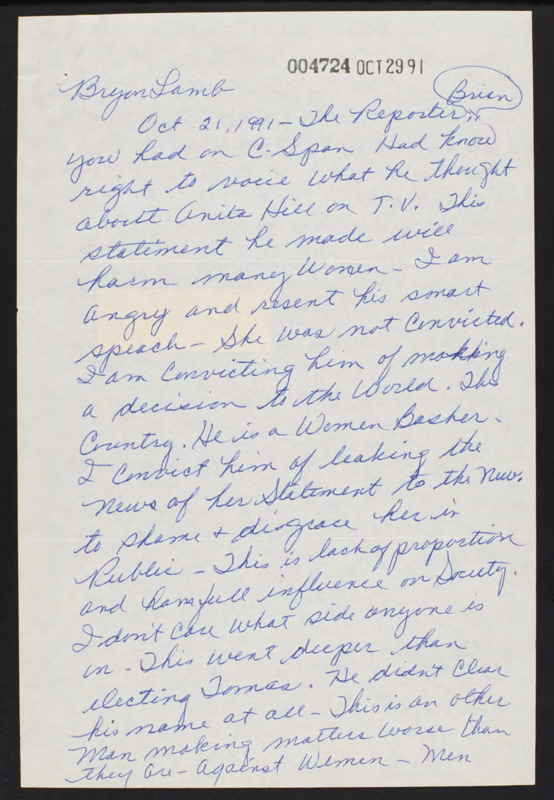 004724 OCT 29 91
Bryon Lamb
Brian
Oct 21, 1991 - The Reporter,
you had on C-Span Had know
right to voice what he thought
aboutt Anita Hill on T.V. This
statement he made will
harm many Women - I am
angry and resent his smart
speach - She was not Convicted.
I am Convicting him of making
a decision to the World. This
Country. He is a Women Basher -
I Convict him of leaking the
news of her Statement to the New.
to shame + disgrace her in
Public - This is lack of proportion
and harmfull influence on Society.
I don't care what side anyone is
in - This went deeper than
electing Tomas. He didn't Clear
his name at all - This is an other
Man making matters worse than
they are - Against Women - Men